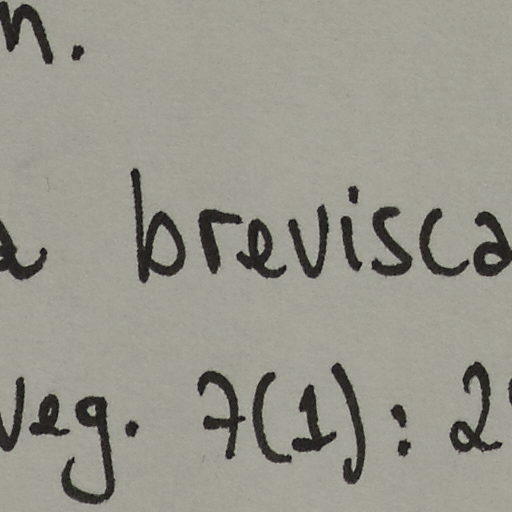 n.
a brevisca
veg. 7(1): 2